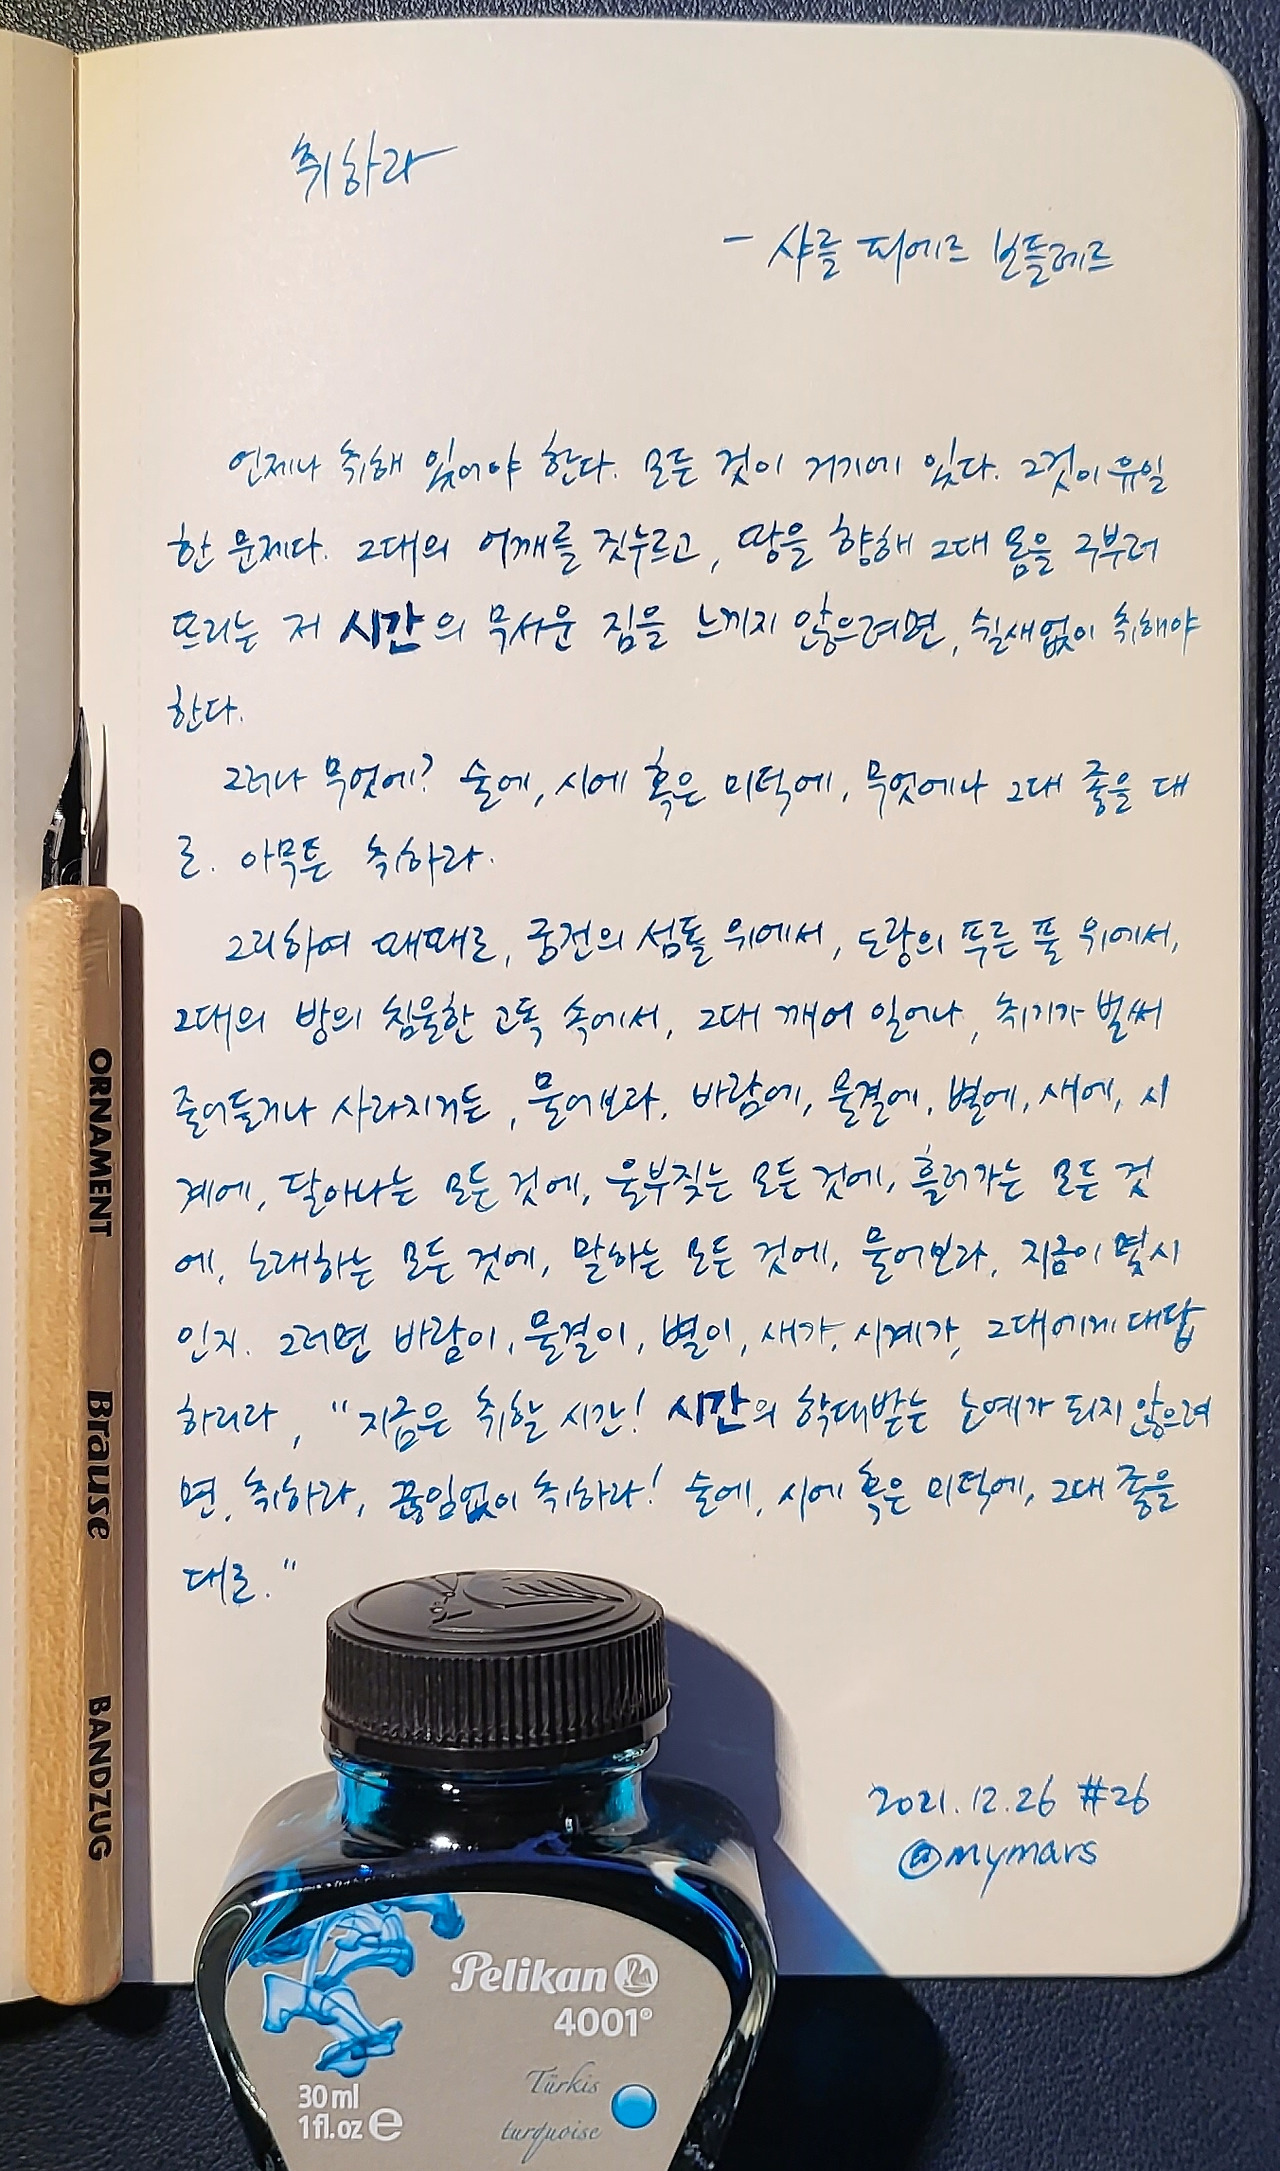 취하라
- 샤를 피에르 보들레르
언제나 취해 있어야 한다. 모든 것이 거기에 있다. 그것이 유일
한 문제다. 그대의 어깨를 짓누르고, 땅을 향해 그대 몸을 구부러
뜨리는 저 시간의 무서운 짐을 느끼지 않으려면, 쉴새없이 취해야
한다.
그러나 무엇에? 술에, 시에 혹은 미덕에, 무엇에나 그대 좋을 대
로. 아무튼 취하라.
그리하여 때때로, 궁전의 섬돌 위에서, 도랑의 푸른 풀 위에서,
그대의 방의 침울한 고독 속에서, 그대 깨어 일어나, 취기가 벌써
줄어들거나 사라지거든, 물어보라, 바람에, 물결에, 별에, 새에, 시
계에, 달아나는 모든 것에, 울부짖는 모든 것에, 흘러가는 모든 것
에, 노래하는 모든 것에, 말하는 모든 것에, 물어보라, 지금이 몇시
인지. 그러면 바람이, 물결이, 별이, 새가, 시계가, 그대에게 대답
하리라, "지금은 취할 시간! 시간의 학대받는 노예가 되지 않으려
면, 취하라, 끊임없이 취하라! 술에, 시에 혹은 미덕에, 그대 좋을
대로."
2021.12.26 #26
@mymars
ORNAMENT Brause BANDZUG
Pelikan
4001®
Türkis
turquoise
30 ml
1 fl.oz e